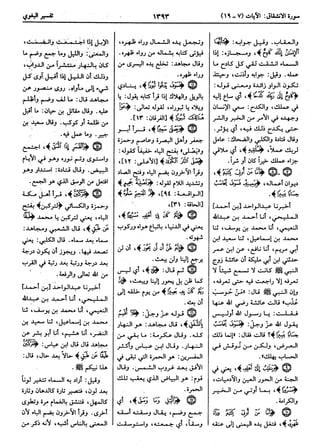 سورة الانشقاق: الآيات (٧ - ١٩)
١٣٩٣
تفسير البغوي
والعقاب، وقيل جوابه:
ومجازه: إذا
السماء انشقت لقي كل كادح ما
عمله. وقيل: جوابه وأذنت، وحينئذ
تكون الواو زائدة. ومعنى قوله:
أي ساع إليه
في عملك، والكدح: سعي الإنسان
وجهده في الأمر من الخير والشر
حتى يكدح ذلك فيه، أي يؤثر.
وقال قتادة والكلبي والضحاك: عامل
لربك عملًا،
أي ملاقي
جزاء عملك خيرًا كان أو شرًا.
ديوان أعماله،
أخبرنا عبدالواحد [بن أحمد]
المليحي، أنا أحمد بن عبدالله
النعيمي، أنا محمد بن يوسف، ثنا
محمد بن إسماعيل، ثنا سعيد بن
أبي مريم، أنا نافع، عن ابن عمر
حدثني ابن أبي مليكة أن عائشة زوج
النبي ﷺ كانت لا تسمع شيئًا لا
تعرفه إلا راجعت فيه حتى تعرفه،
وأن النبي ﷺ قال: من حوسب
عذب، قالت عائشة رضي الله عنها
فقلت: يا رسول الله أوليس
يقول الله عز وجل:
قالت: فقال: إنما ذلك
العرض، ولكن من نوقش في
الحساب يهلك.
يعني في
الجنة من الحور العين والآدميات،
بما أوتي من الخير
والكرامة.
فتغل يده اليمنى إلى عنقه
وتجعل يده الشمال وراء ظهره،
فيؤتى كتابه بشماله من وراء ظهره.
وقال مجاهد: تخلع يده اليسرى من
وراء ظهره.
ينادي
بالويل والهلاك إذا قرأ كتابه يقول: يا
ويلاه يا ثبوراه، كقوله تعالى:
[الفرقان: ١٣].
قرأ أبو
جعفر وأهل البصرة وعاصم وحمزة
ويصلى بفتح الياء خفيفًا كقوله:
[الأعلى: ١٢]،
وقرأ الآخرون بضم الياء وفتح الصاد
وتشديد اللام كقوله:
[الواقعة: ٩٤]،
[الحاقة: ٣١].
يعني في الدنيا، باتباع هواه وركوب
شهوته.
أن لن
يرجع إلينا ولن يبعث.
ثم قال:
أي ليس
كما ظن بل يحور إلينا ويبعث،
من يوم خلقه إلى
أن بعثه.
قوله عز وجل:
قال مجاهد: هو النهار
كله. وقال عكرمة: ما بقي من
النهار. وقال ابن عباس وأكثر
المفسرين: هو الحمرة التي تبقى في
الأفق بعد غروب الشمس. وقال
قوم: هو البياض الذي يعقب تلك
الحمرة.
أي
جمع وضم، يقال وسقته أسقه
وسقًا، أي جمعته، واستوسقت
الإبل إذا اجتمعت وانضمت،
والمعنى: والليل وما جمع وضم ما
كان بالنهار منتشرًا من الدواب،
وذلك أن الليل إذا أقبل أوى كل
شيء إلى مأواه. روى منصور عن
مجاهد قال: ما لف وضم وأظلم
عليه. وقال مقاتل بن حيان: ما أقبل
من ظلمة أو كوكب. وقال سعيد بن
جبير: وما عمل فيه.
اجتمع
واستوى وتم نوره وهو في الأيام
البيض. وقال قتادة: استدار وهو
افتعل من الوسق الذي هو الجمع.
قرأ أهل مكة
وحمزة والكسائي لتركبن بفتح
الباء، يعني لتركبن يا محمد
قال الشعبي ومجاهد:
سماء بعد سماء. قال الكلبي: يعني
تصعد فيها. ويجوز أن يكون درجة
بعد درجة ورتبة بعد رتبة في القرب
من الله تعالى والرفعة.
أخبرنا عبدالواحد [بن أحمد]
المليحي، أنا أحمد بن عبدالله
النعيمي، أنا محمد بن يوسف، ثنا
محمد بن إسماعيل، ثنا سعيد بن
النضر، أنا هشيم، أنا أبو بشر عن
مجاهد قال: قال ابن عباس:
حالًا بعد حال، قال:
هذا نبيكم ﷺ.
وقيل: أراد به السماء تتغير لونًا
بعد لون، فتصير تارة كالدهان وتارة
كالمهل، وتنشق بالغمام مرة وتطوى
أخرى. وقرأ الآخرون بضم الباء لأن
المعنى بالناس أشبه، لأنه ذكر من